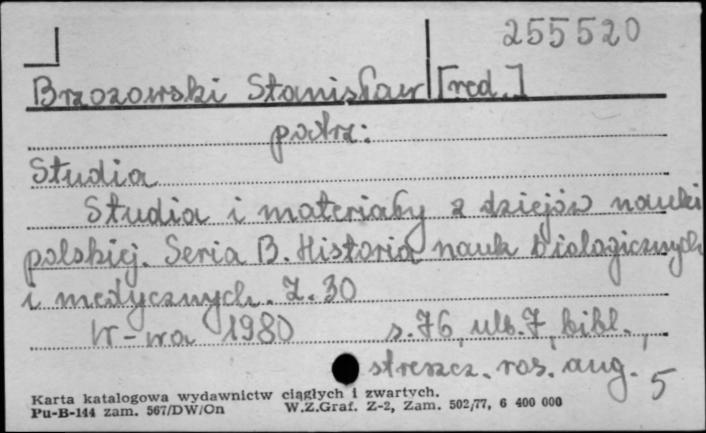 255520
Brzozowski Stanisław [red.]
patrz:
Studia
Studia i materiały z dziejów nauki
polskiej. Seria B. Historia nauk biologicznych
i medycznych. Z. 30
W-wa 1980 s. 76, ulb. 7, bibl.,
streszcz. ros. ang.
5
Karta katalogowa wydawnictw ciągłych i zwartych.
Pu-B-144 zam. 567/DW/On W.Z.Graf. Z-2, Zam. 502/77, 6 400 000